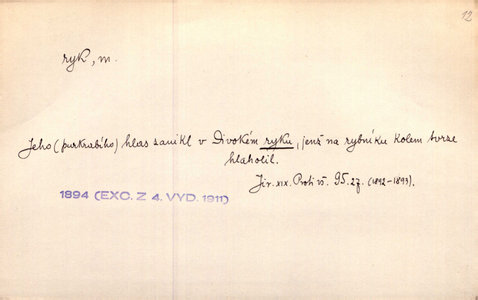 12
ryk, m.
Jeho (purkrabího) hlas zanikl v divokém ryku, jenž na rybníku kolem tvrze
hlaholil.
Jir. XIX. Proti vš. 95. 27. (1892-1893).
1894 (EXC. Z 4. VYD. 1911)